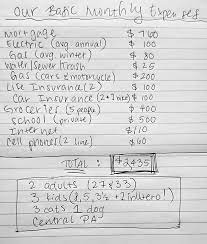 Our Basic Monthly Expenses
Mortgage $760
Electric (avg. annual) $100
Gal (avg. winter) $80
Water/Sewer/Trash $25
Gas (cars & motorcycle) $200
Life Insurance (2) $100
Car Insurance $100
Groceries (5 people) $400
School (private) $500
Internet $110
Cell phones (2 line) $60
TOTAL: $2435
2 adults (27 & 33)
3 kids (8, 5, 3½
3 cats 1 dog
Central PA